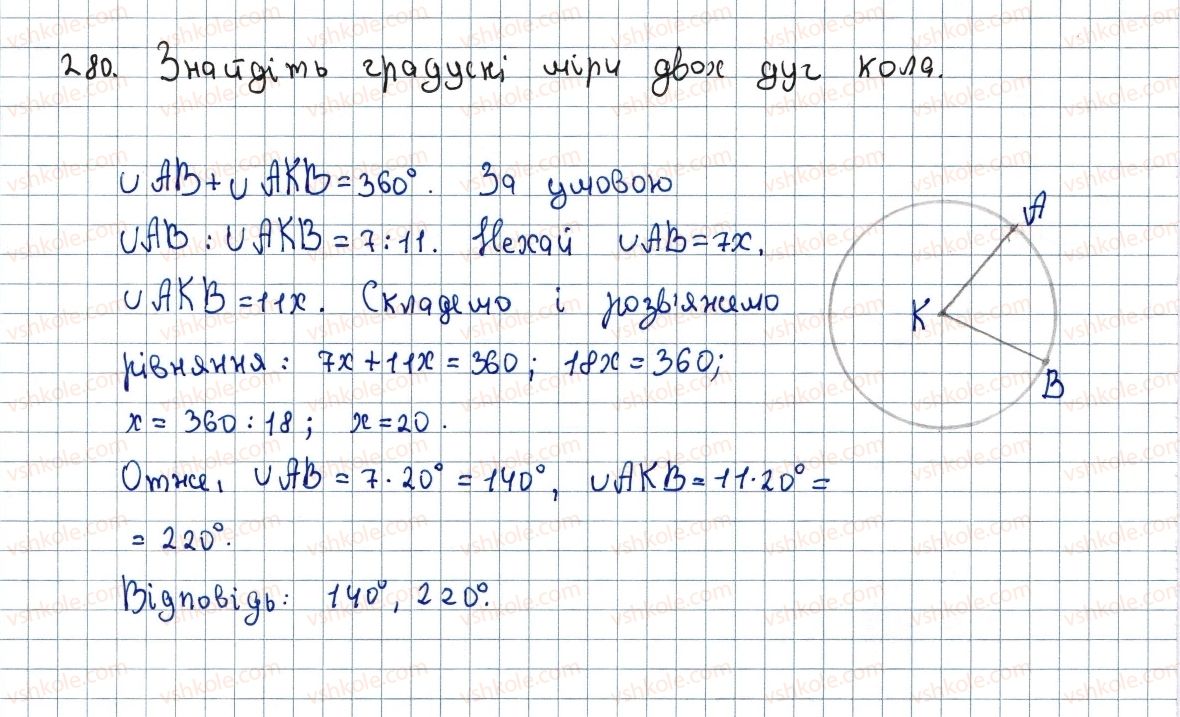 280. Знайдіть градускі міри двох дуг кола.
∪AB+∪AKB=360°. За умовою
∪AB:∪AKB=7:11. Нехай ∪AB=7x,
∪AKB=11x. Складемо і розв'яжемо
рівняння: 7x+11x=360; 18x=360;
x=360:18; x=20.
Отже, ∪AB=7·20°=140°, ∪AKB=11·20°=
=220°.
Відповідь: 140°, 220°.
A
K
B
vshkole.com